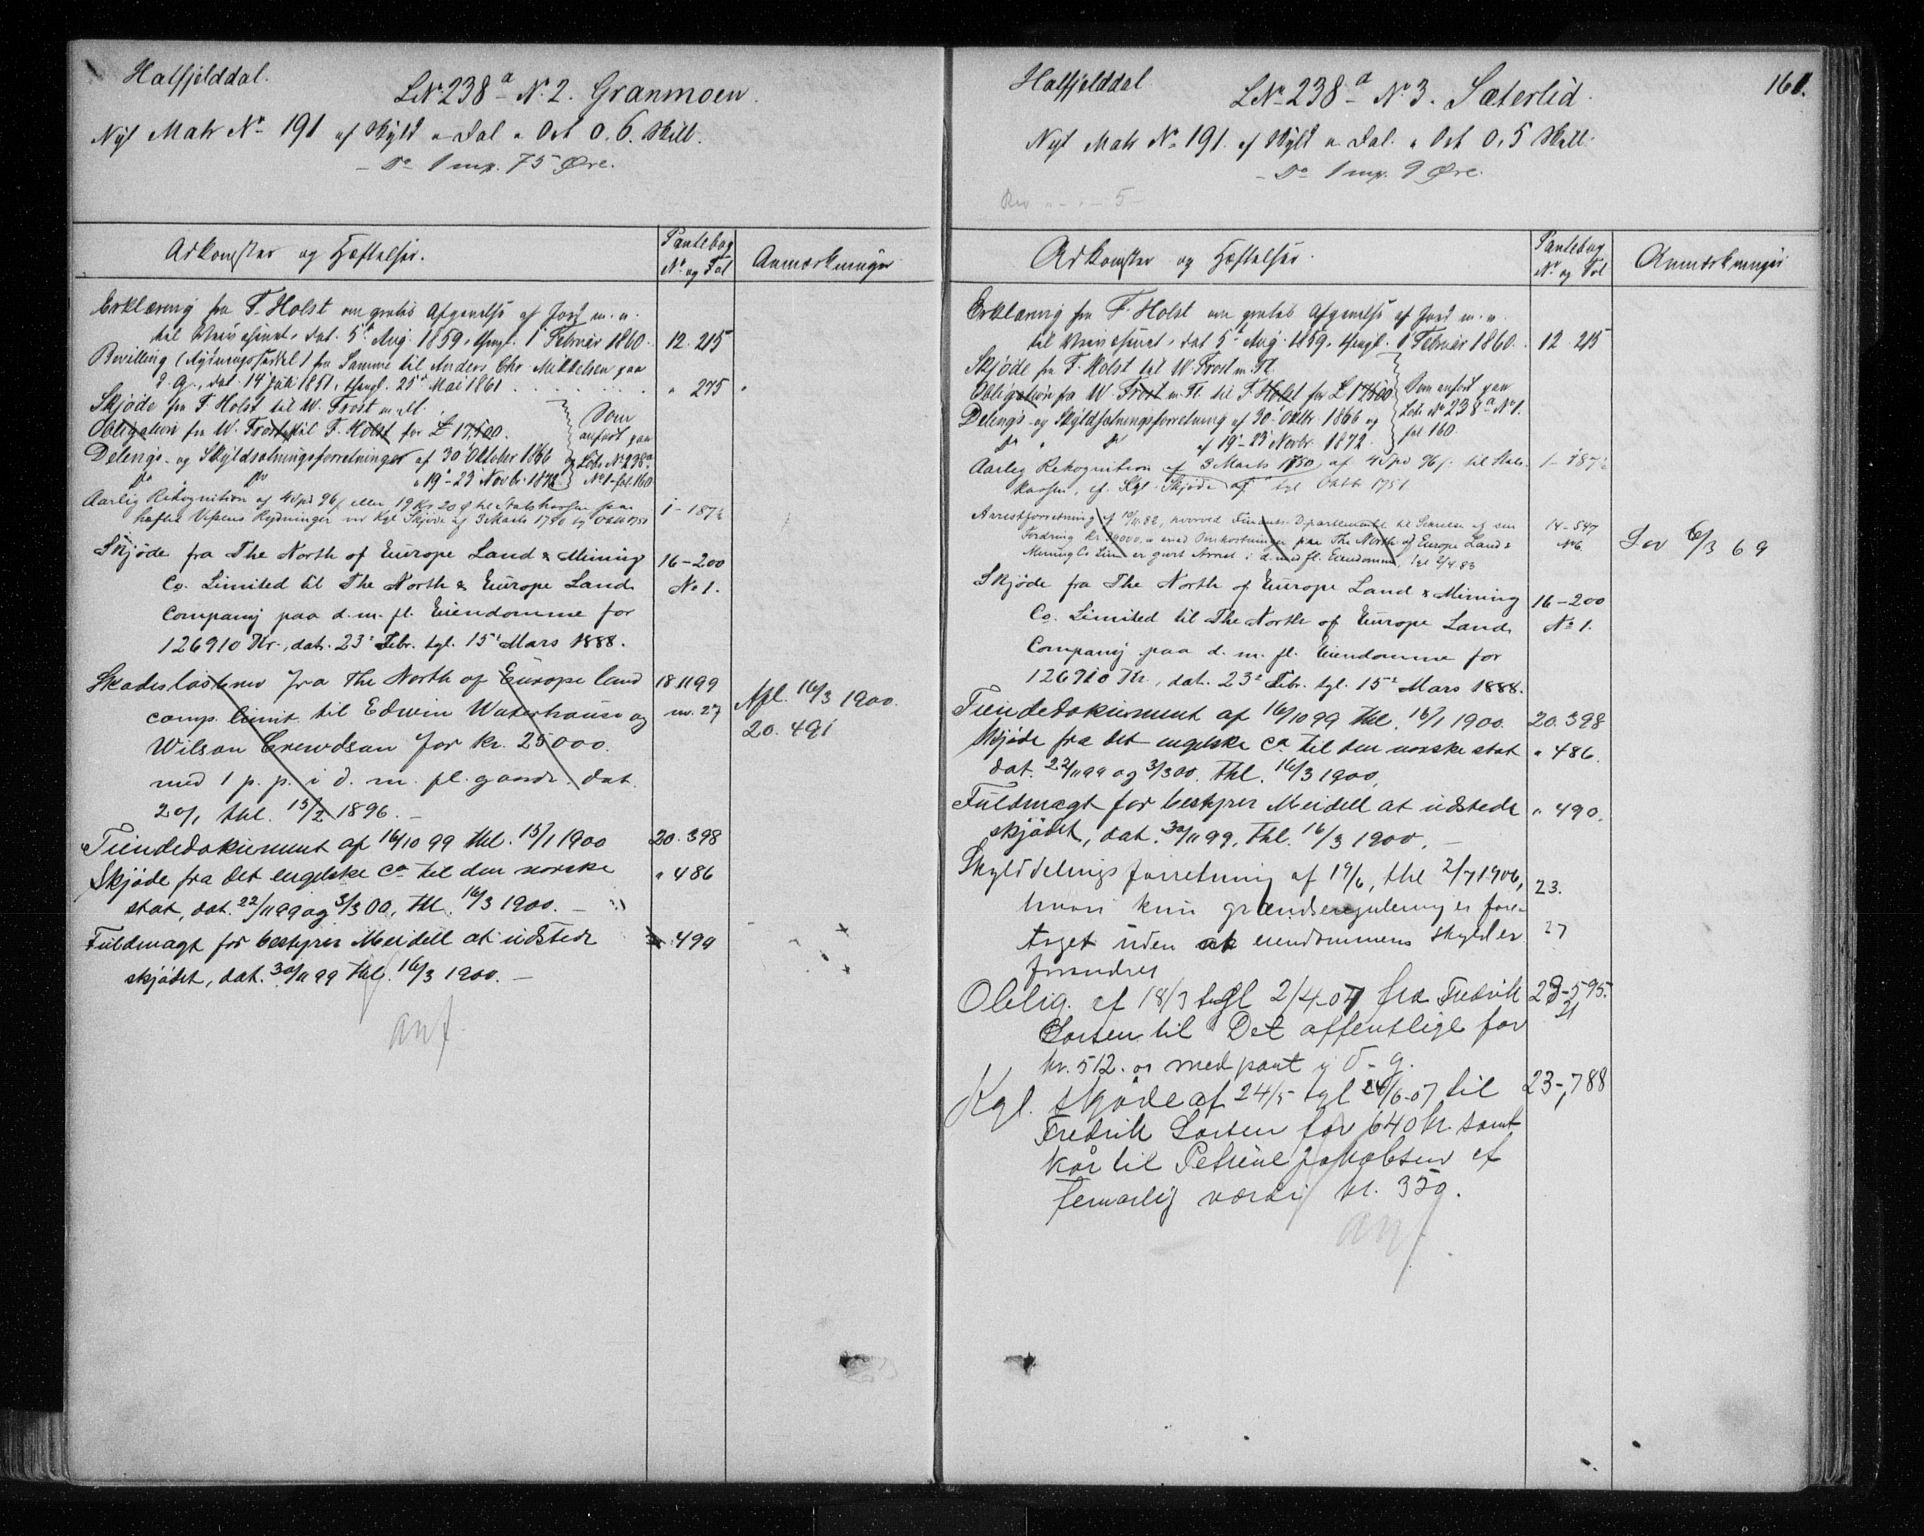 Hatfjelddal.
LNr 238a No 2. Granmoen.
Nyt Matr No 191 af Skyld " Dal. " Ort 0.6. Skill.
– Do 1 mrk. 75 Øre.
Adkomster og Hæftelser.
Pantebog
No og Fol
Anmærkninger
Erklæring fra F. Holst om gratis Afgivelse af Jord m. v.
til Univ dat. 5te Aug. 1859, thingl. 1 Februar 1860.
12. 215
Bevilling (Rydningsseddel) fra Samme til Anders Chr Mikkelsen paa
d. G., dat. 14 Juli 1851, thingl. 25de Mai 1861
" 275
Skjøde fra F. Holst til W. Frost m. fl.
Obligation fra W. Frost til F. Holst for £ 17,500.
Som
anført paa
Delings- og Skyldsætningsforretninger af 30te Oktober 1866
Løbe No 238a
do " do " 19de - 23 Novbr. 1872
No 1 - fol. 160
Aarlig Rekognition af 4 Spd 96 s eller 19 Kr 20 Ø til Statskassen
hæfter Rydninger Kgl Skjøde af 3 Marts 1750 tgl Oktbr 1751
1 - 187½
Skjøde fra The North of Europe Land & Mining
Co. Limited til The North & Europe Land
Company paa d. m. fl. Eiendomme for
126910 Kr., dat. 23de Febr. tgl. 15de Mars 1888.
16 - 200
No 1.
Skadesløsbrev fra The North of Europe land
comp. limit. til Edwin Waterhouse og
Wilson Crewdson for kr. 25000.
med 1 p. p. i d. m. fl. gaarde. dat.
20/1, thl. 15/2 1896. –
18 1199
nr. 27
Afl. 16/3 1900.
20. 491
Tiendedokument af 16/10 99 thl. 15/1 1900
20. 398
Skjøde fra det engelske Co til den norske
stat, dat. 22/11 99 og 3/3 00, thl. 16/3 1900. –
" 486
Fuldmagt for bestyrer Meidell at udstede
skjødet, dat. 30/11 99 thl. 16/3 1900. –
499
anf.
Hatfjelddal
161.
LNo 238a No 3. Sæterlid.
Nyt Matr No 191. af Skyld " Dal. " Ort 0.5 Skill.
– Do 1 mrk. 9 Øre.
Rev " - " - 5 -
Adkomster og Hæftelser.
Pantebog
No og Fol
Anmærkninger
Erklæring fra F. Holst om gratis Afgivelse af Jord m. v.
til dat 5te Aug. 1859, thingl. 1 Februar 1860.
12 215
Skjøde fra F. Holst til W. Frost m. Fl.
Obligation fra W. Frost m. Fl. til F. Holst for £ 17500
Som anført paa
Løbe No 238a No 1.
fol 160
Delings- og Skyldsætningsforretning af 30te Oktbr 1866 og
do " do af 19de - 23 Novbr. 1872.
Aarlig Rekognition af 3 Marts 1750, af 4 Spd 96 s. til Stats-
kassen, cf. Kgl. Skjøde af tgl Oktbr 1751
1 - 187½
Arrestforretning af 10/11. 82, hvorved Finants-Departementet til Sikkerhed af sin
Fordring Kr 19000. med Omkostninger paa The North of Europe Land &
Mining Co Lim er gjort Arrest i d. m. fl. Eiendomme, tgl 2/4. 83
14 - 547
No 6
Sev 6/3 69
Skjøde fra The North of Europe Land & Mining
Co. Limited til The North of Europe Land
Company paa d. m. fl. Eiendomme for
126910 Kr., dat. 23de Febr. tgl. 15de Mars 1888.
16 - 200
No 1.
Tiendedokument af 16/10 99 thl. 15/1 1900.
20. 398
Skjøde fra det engelske Co til den norske stat
dat. 22/11 99 og 3/3 00. thl. 16/3 1900.
" 486.
Fuldmagt for bestyrer Meidell at udstede
skjødet, dat. 30/11 99, thl. 16/3 1900. –
" 490.
Skylddelingsforretning af 19/6, thl 2/7 1906,
hvori kun grændseregulering er fore-
taget uden at eiendommens skyld er
forandret
23.
27
Oblig. af 18/3 tgl 2/4-07 fra Fredrik
Larsen til Det offentlige for
kr. 512. 01 med pant i d. g.
23 - 595.
21
Kgl. skjøde af 24/5 tgl 24/6-07 til
Fredrik Larsen for 640 kr. samt
kår til Petrine Jakobsen af
femårlig værdi kr. 350.
23 - 788
anf.